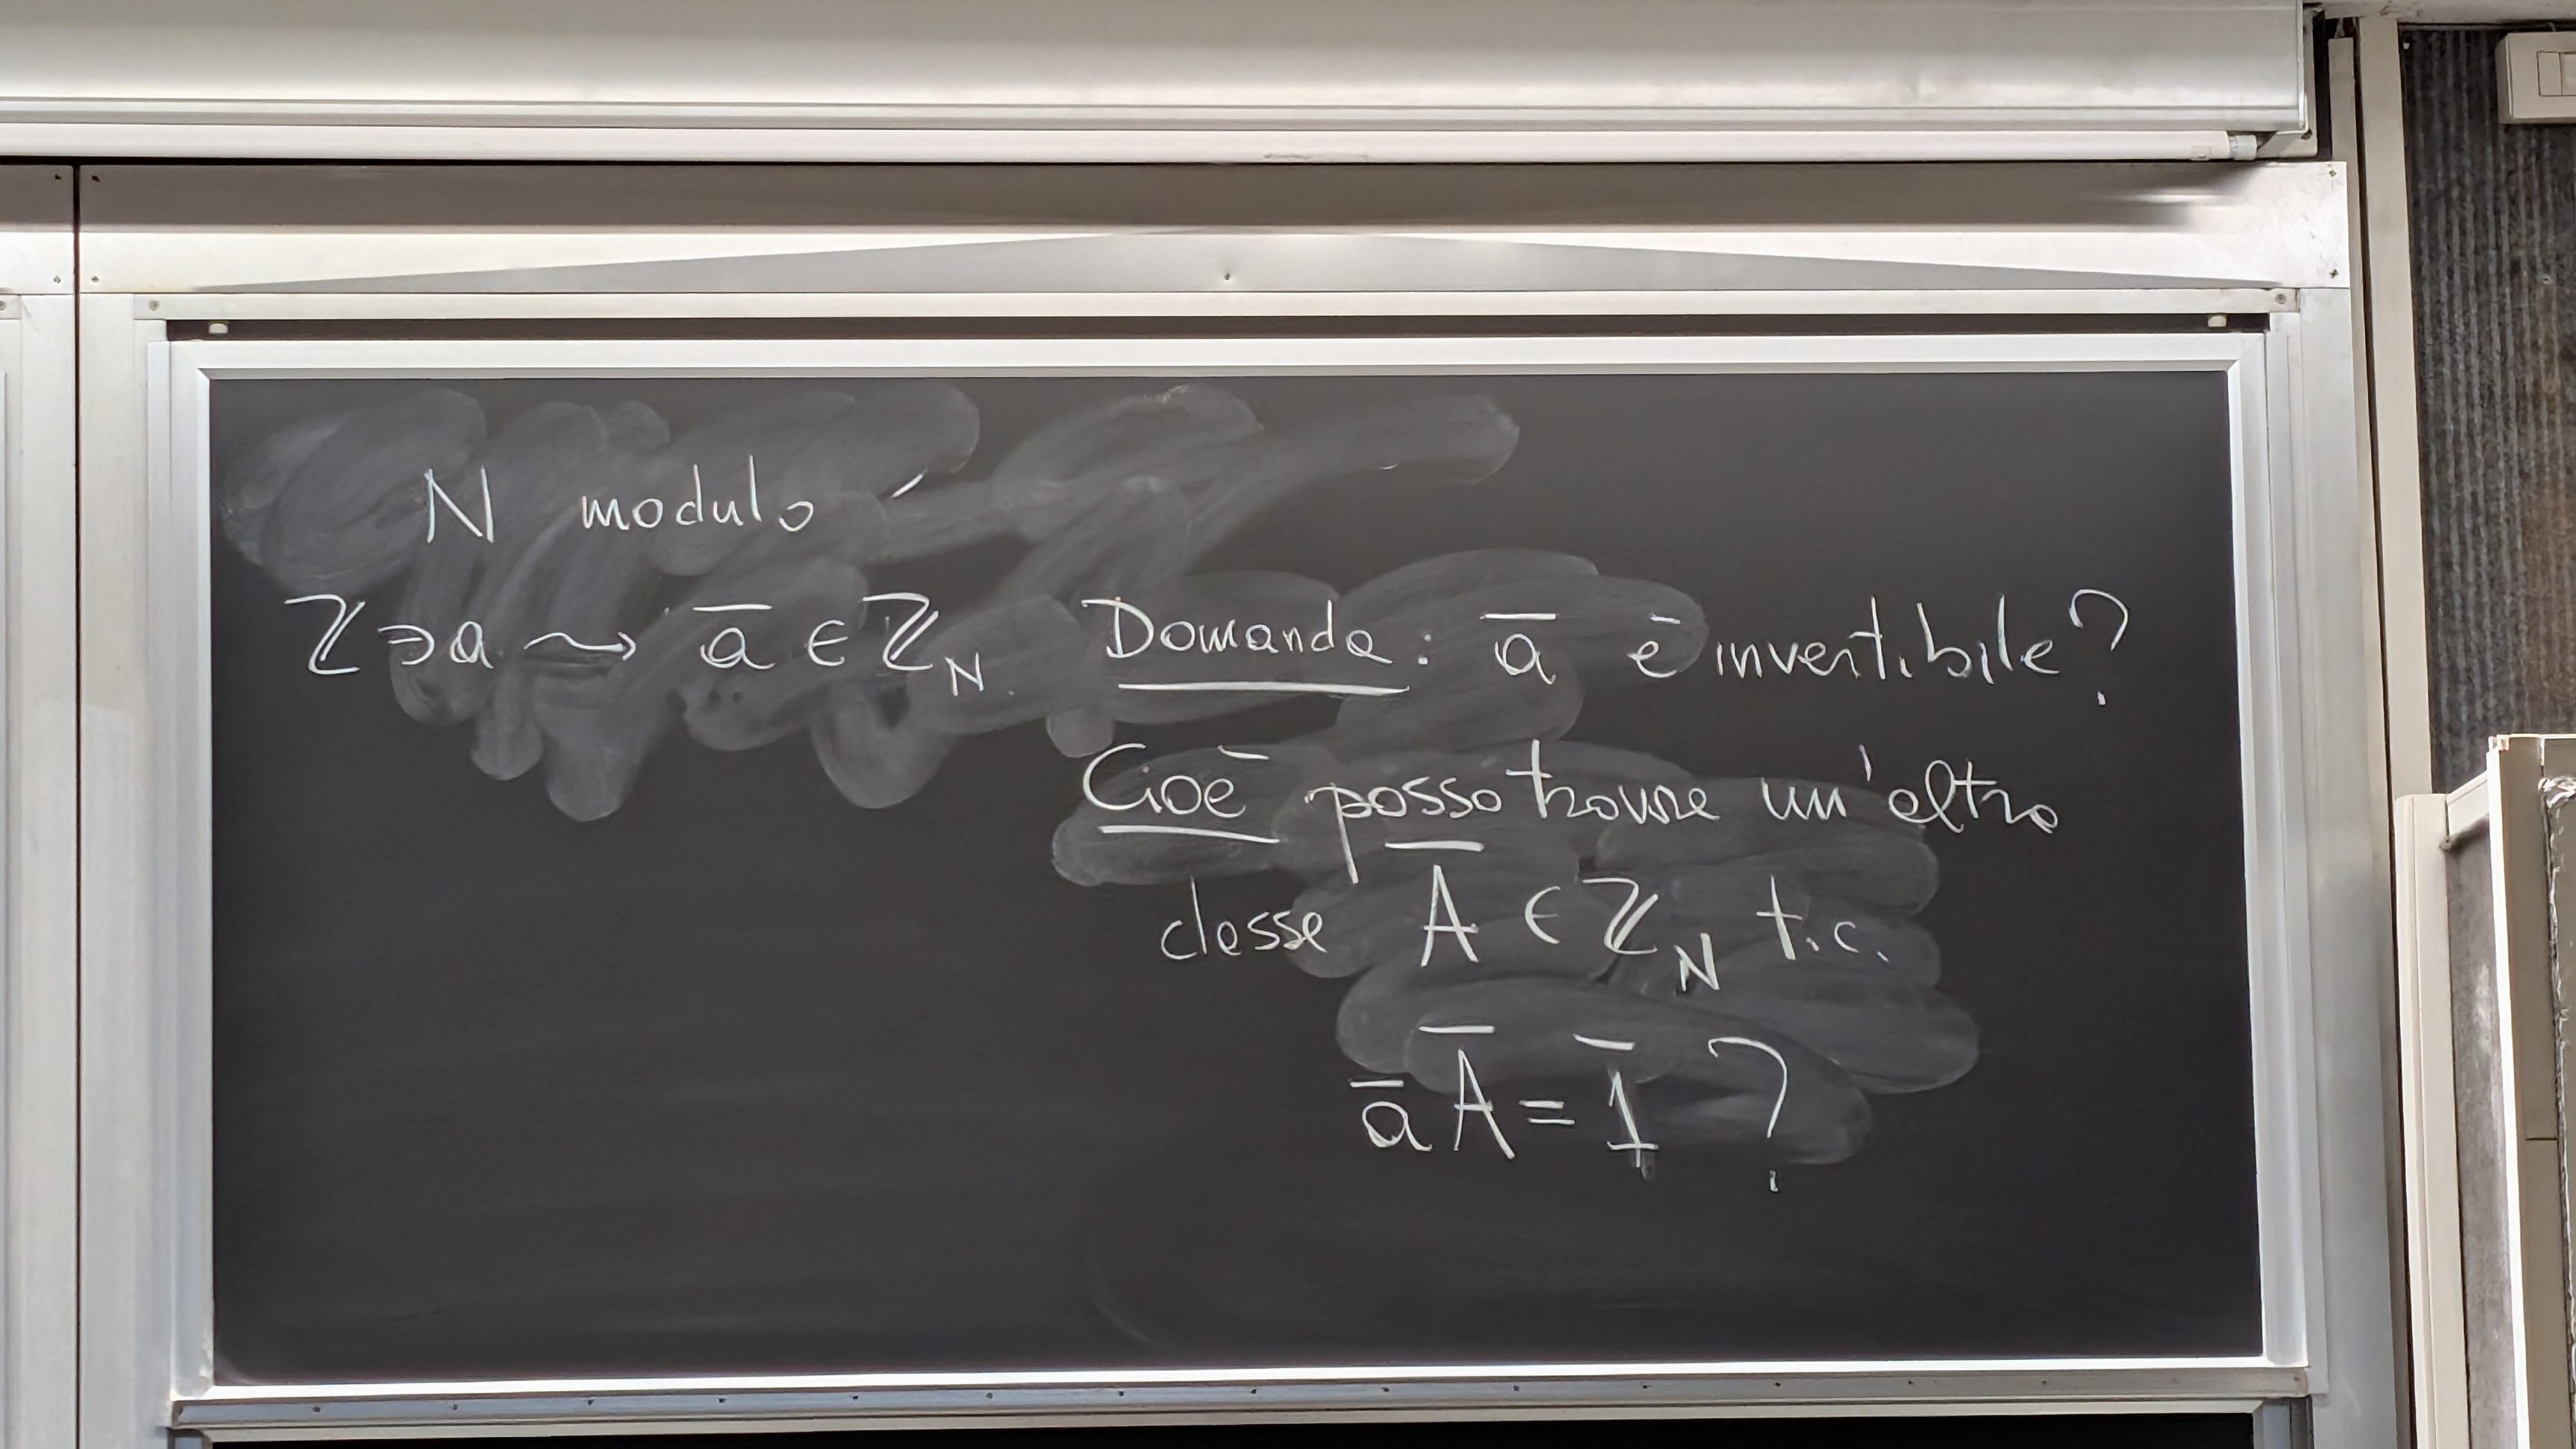 N modulo
ℤ∋a ⇝ a̅ ∈ ℤ_N Domanda: a̅ è invertibile?
Cioè posso trovare un'altra
classe A̅ ∈ ℤ_N t.c.
a̅ A̅ = 1̅ ?